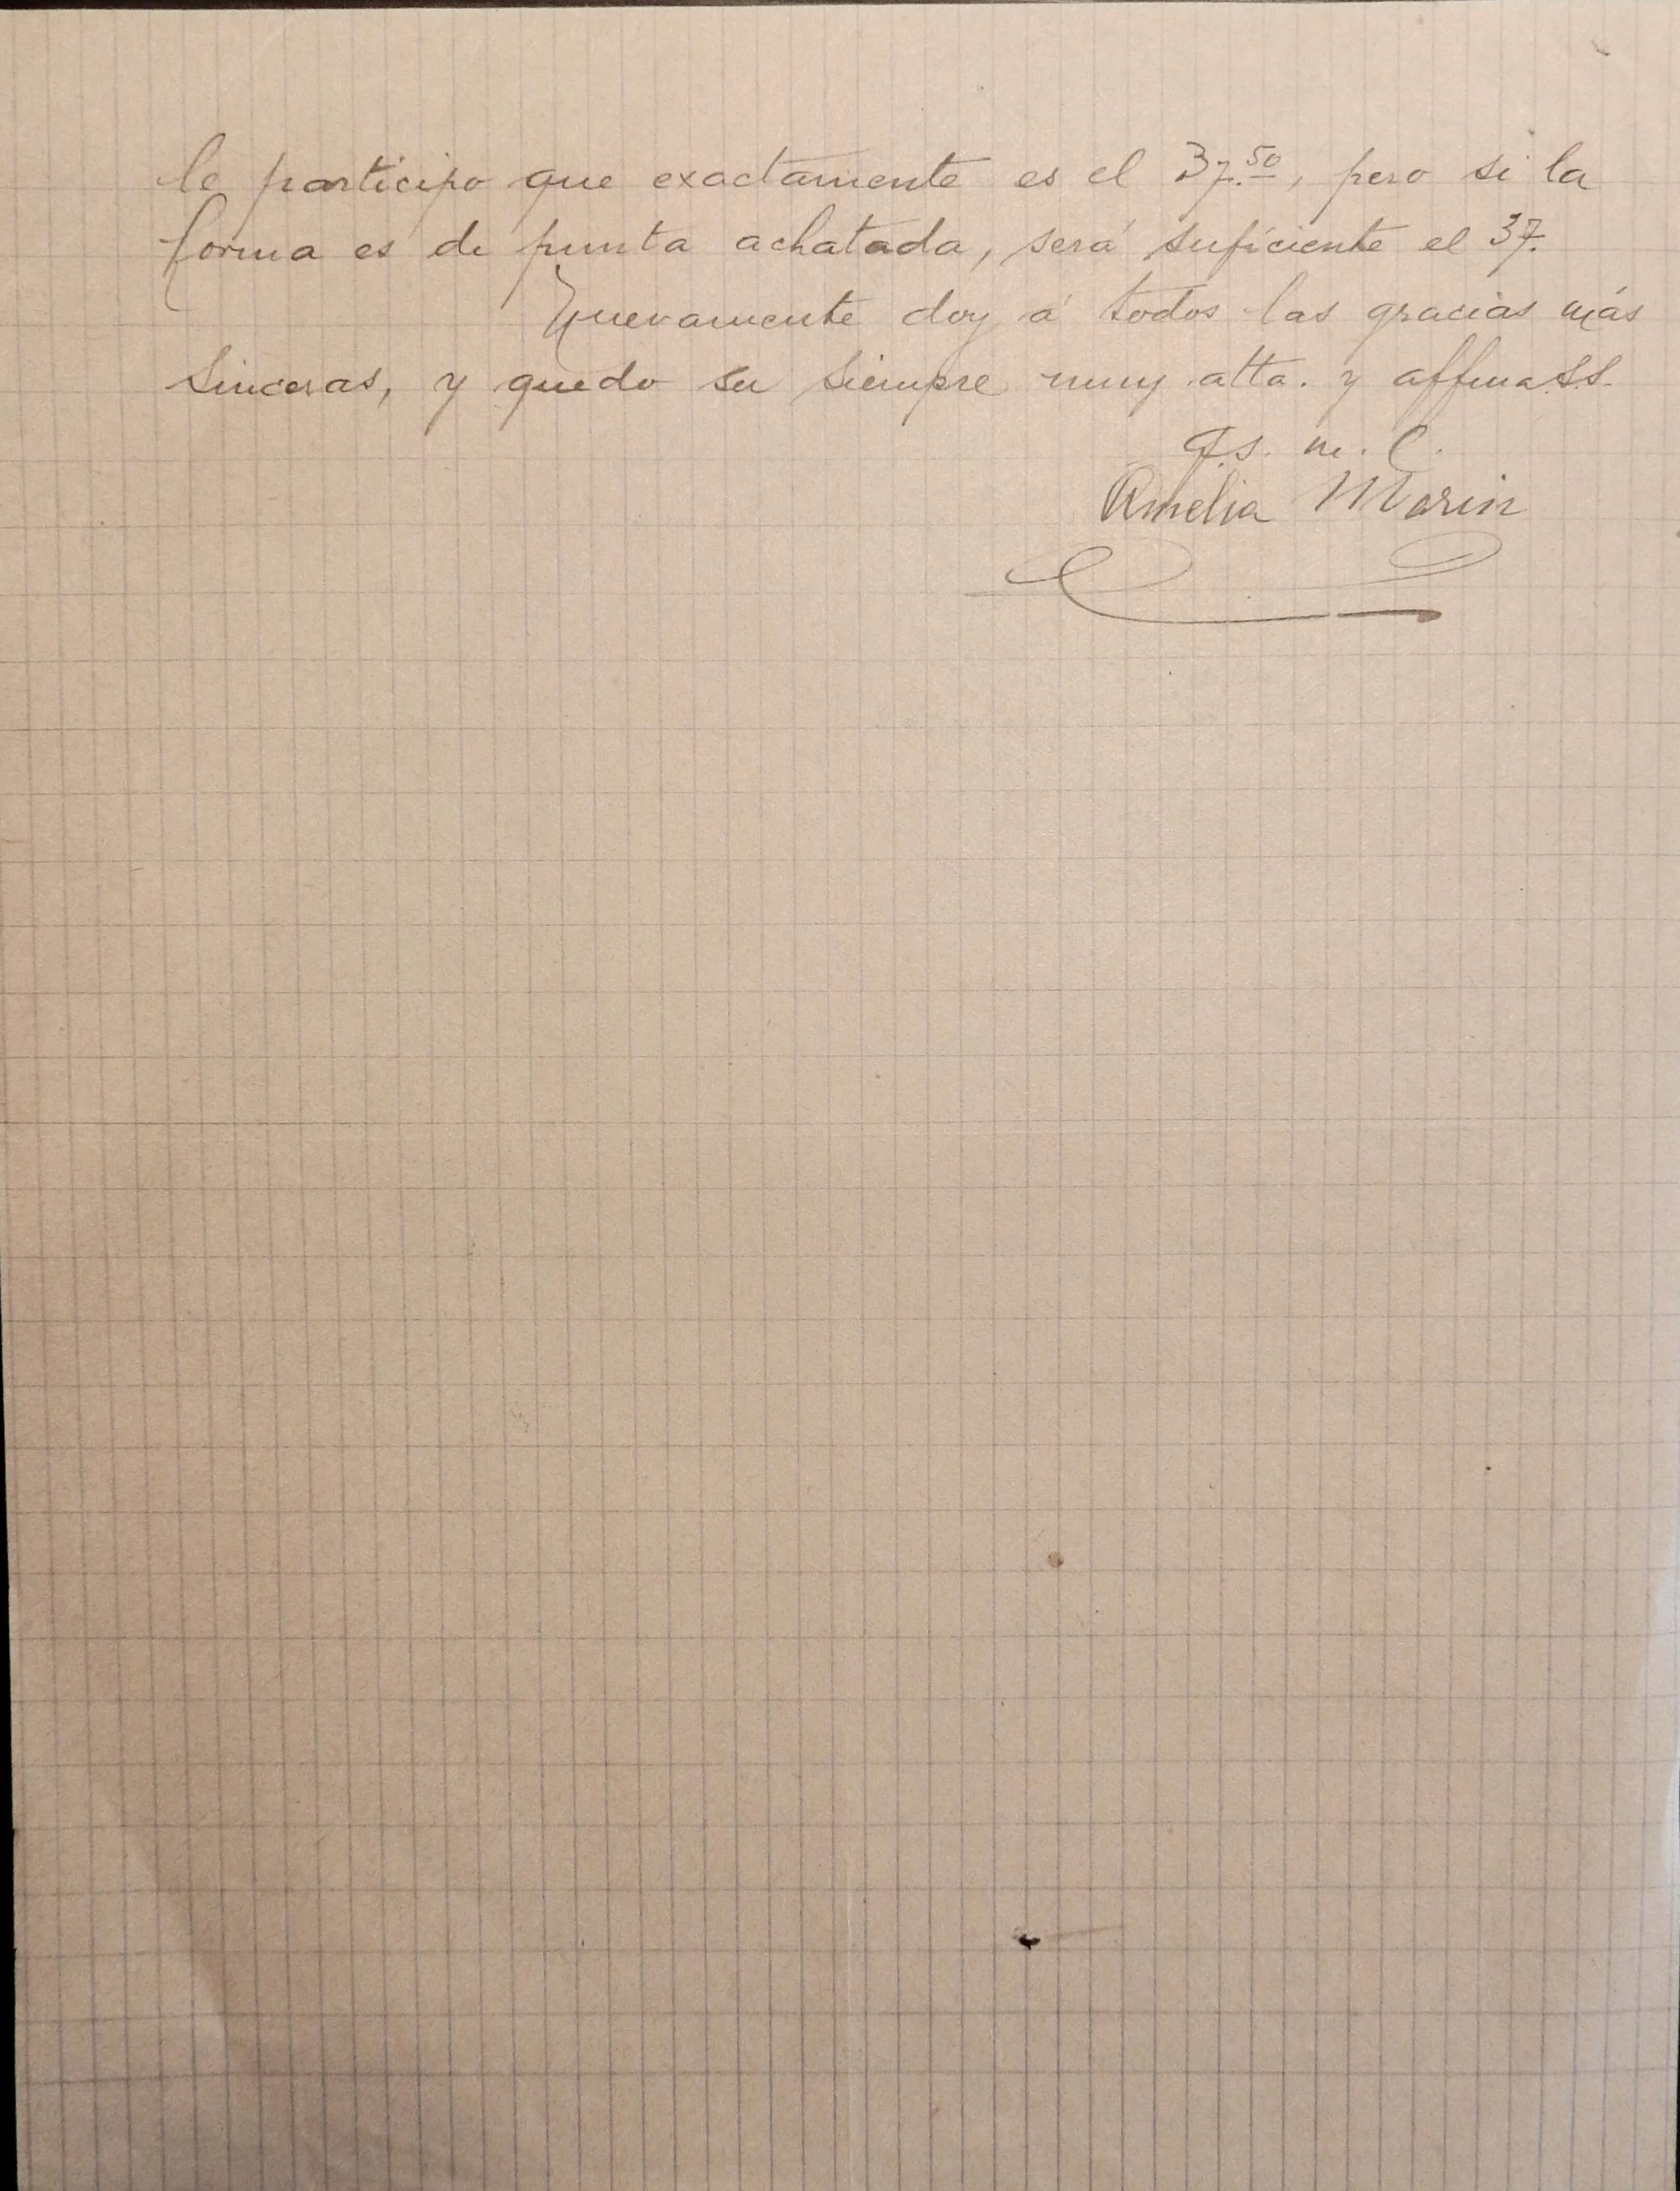 le participo que exactamente es el 37.50, pero si la
forma es de punta achatada, será suficiente el 37.
Nuevamente doy á todos las gracias más
sinceras, y quedo su siempre muy atta. y affma S.S.
q.s. m. C.
Amelia Marin